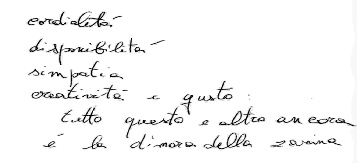 cordialità
disponibilità
simpatia
creatività e gusto:
tutto questo e altro ancora
è la dimora della zanina